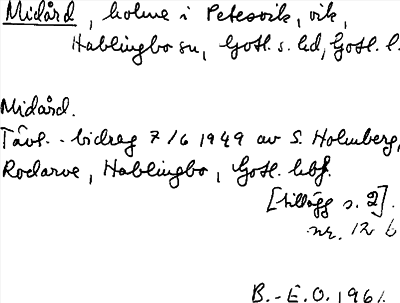 Midård, holme i Petesvik, vik,
Hablingbo sn, Gotl. s. hd, Gotl. l.
Midård.
Tävl.-bidrag 7/6 1949 av S. Holmberg,
Rodarve, Hablingbo, Gotl. hbf.
[tillägg s. 2].
nr. 12 b
B.-E.O. 1961.